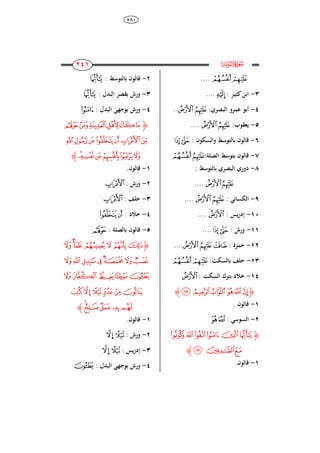 ٤٨٠
٢٤١
.... عَلَيْهِمْ أَنْفُسُهُمْ
٣- ابن كثير : إِلَيْهِ ....
٤- أبو عمرو البصري: عَلَيْهِمُ الْأَرْضُ..
٥- يعقوب: عَلَيْهُمُ الْأَرْضُ ....
٦- قالون بالتوسط والسكون : حَتَّىٰ إِذَا
٧- قالون بتوسط الصلة: عَلَيْهِمُ أَنْفُسُهُمْ
٨- دوري البصري بالتوسط :
عَلَيْهِمِ الْأَرْضُ ....
٩- الكسائي : عَلَيْهُمُ الْأَرْضُ ....
١٠- إدريس : الْأَرْضُ ....
١١- ورش : حَتَّىٰ إِذَا ....
١٢- حمزة : ضَاقَتْ عَلَيْهُمُ الْأَرْضُ....
١٣- خلف بالسكت: عَلَيْهِمْ أَنْفُسُهُمْ
١٤- خلاد بترك السكت : الْأَرْضُ
﴿ إِنَّ اللَّهَ هُوَ التَّوَّابُ الرَّحِيمُ ﴾
١- قالون .
٢- السوسي : اللَّهَ هُوَ
﴿ يَا أَيُّهَا الَّذِينَ آمَنُوا اتَّقُوا اللَّهَ وَكُونُوا
مَعَ الصَّادِقِينَ ﴾
١- قالون.
٢- قالون بالتوسط : يَا أَيُّهَا
٣- ورش بقصر البدل : يَا أَيُّهَا
٤- ورش بوجهي البدل : آمَنُوا
﴿ مَا كَانَ لِأَهْلِ الْمَدِينَةِ وَمَنْ حَوْلَهُم
مِّنَ الْأَعْرَابِ أَن يَتَخَلَّفُوا عَن رَّسُولِ اللَّهِ
وَلَا يَرْغَبُوا بِأَنفُسِهِمْ عَن نَّفْسِهِ ﴾
١- قالون.
٢- ورش : الْأَعْرَابِ
٣- خلف : الْأَعْرَابِ
٤- خلاد : أَن يَتَخَلَّفُوا
٥- قالون بالصلة : حَوْلَهُم
﴿ ذَٰلِكَ بِأَنَّهُمْ لَا يُصِيبُهُمْ ظَمَأٌ وَلَا
نَصَبٌ وَلَا مَخْمَصَةٌ فِي سَبِيلِ اللَّهِ وَلَا
يَطَئُونَ مَوْطِئًا يَغِيظُ الْكُفَّارَ وَلَا
يَنَالُونَ مِنْ عَدُوٍّ نَّيْلًا إِلَّا كُتِبَ
لَهُم بِهِ عَمَلٌ صَالِحٌ ﴾
١- قالون.
٢- ورش : نَّيْلًا إِلَّا
٣- إدريس : نَّيْلًا إِلَّا
٤- ورش بوجهي البدل : يَطَئُونَ